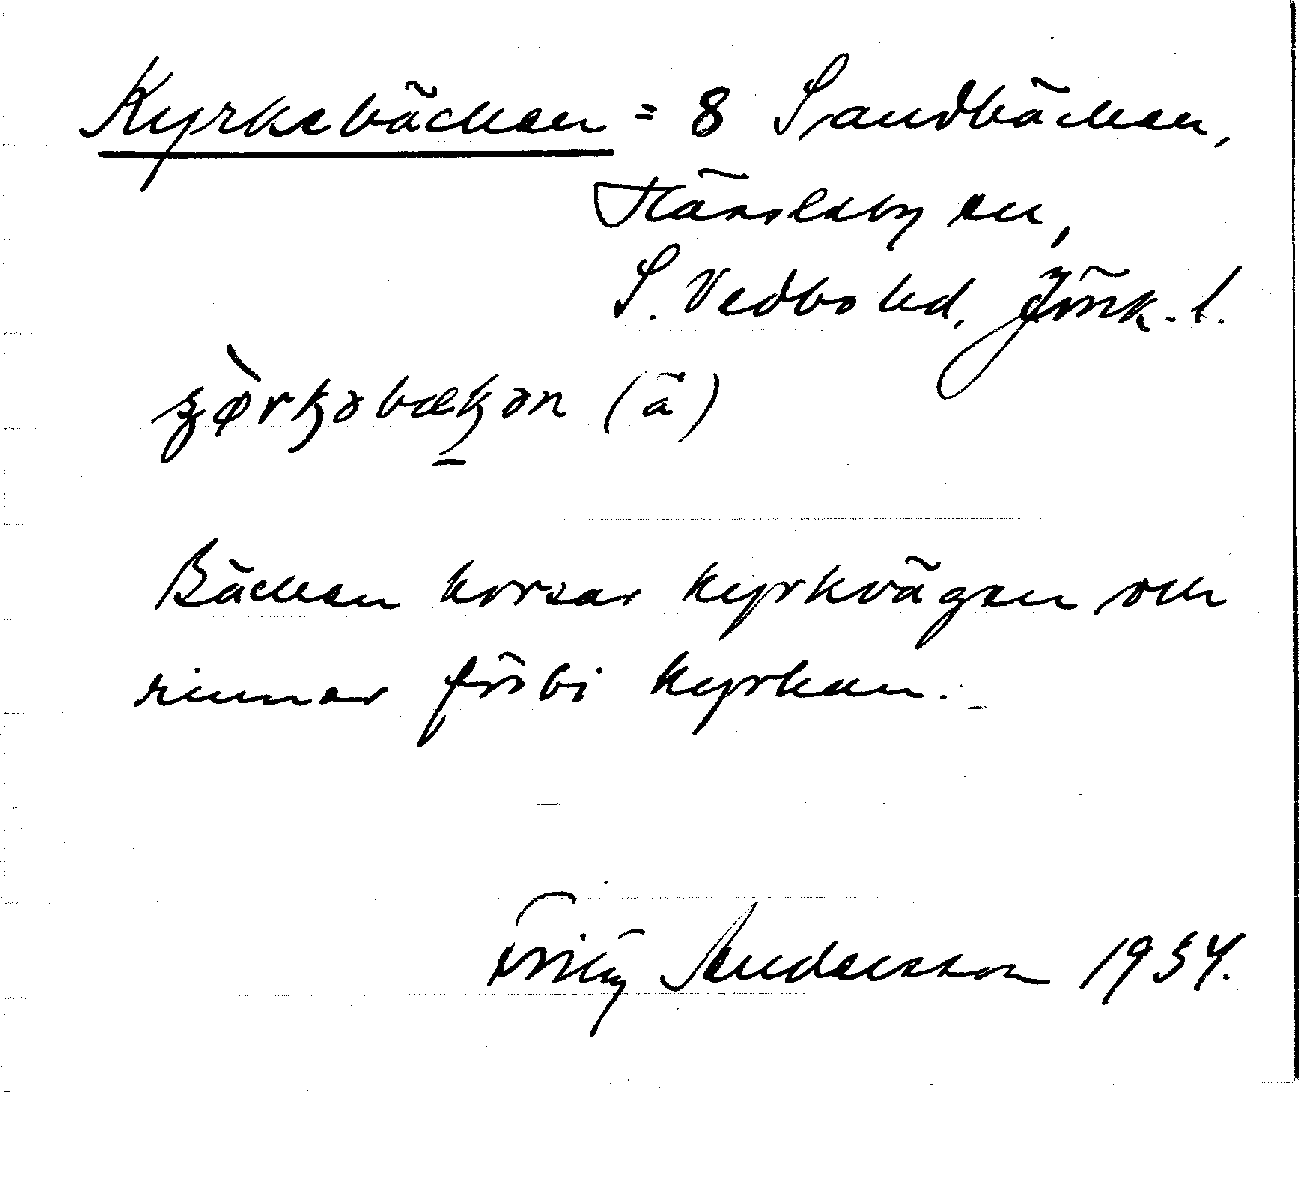 Kyrkebäcken = 8 Sandbäcken,
sn,
S. Vedbo hd, Jönk. l.
(ä)
Bäcken korsar kyrkvägen och
rinner förbi kyrkan.
Fritz Andersson 1934.